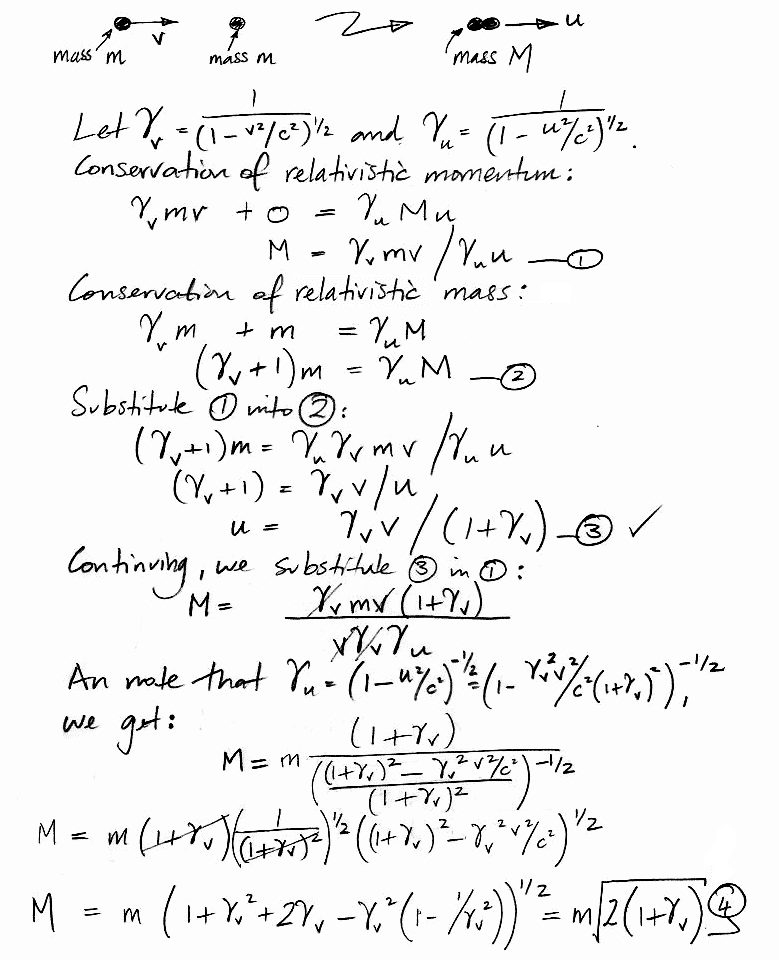 mass m v mass m mass M u
Let γ_v = 1/(1 - v²/c²)^1/2 and γ_u = 1/(1 - u²/c²)^1/2.
Conservation of relativistic momentum:
γ_v mv + 0 = γ_u Mu
M = γ_v mv / γ_u u — ①
Conservation of relativistic mass:
γ_v m + m = γ_u M
(γ_v + 1)m = γ_u M — ②
Substitute ① into ②:
(γ_v + 1)m = γ_u γ_v mv / γ_u u
(γ_v + 1) = γ_v v/u
u = γ_v v / (1 + γ_v) — ③ ✓
Continuing, we substitute ③ in ①:
M = γ_v mv (1 + γ_v) / v γ_v γ_u
An note that γ_u = (1 - u²/c²)^-1/2 = (1 - γ_v² v²/c²(1 + γ_v)²)^-1/2,
we get:
M = m (1 + γ_v) / (((1 + γ_v)² - γ_v² v²/c²) / (1 + γ_v)²)^-1/2
M = m (1 + γ_v)(1/(1 + γ_v)²)^1/2 ((1 + γ_v)² - γ_v² v²/c²)^1/2
M = m (1 + γ_v² + 2γ_v - γ_v² (1 - 1/γ_v²))^1/2 = m√2(1 + γ_v) ④